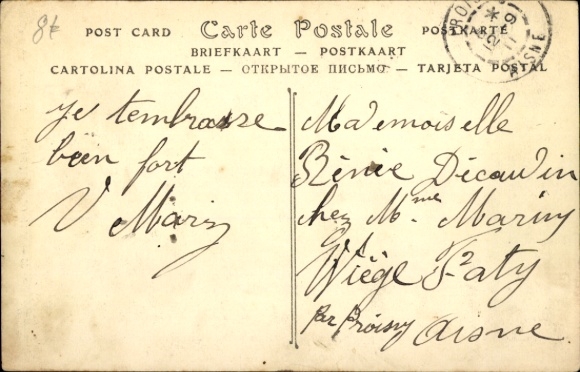 8t
POST CARD Carte Postale POSTKARTE
BRIEFKAART — POSTKAART
CARTOLINA POSTALE — ОТКРЫТОЕ ПИСЬМО — TARJETA POSTAL
PROI
*
12-9
AISNE
je t'embrasse
bien fort
V Mariny
Mademoiselle
Rénée Décauvin
chez Mme Mariny
Wiège Faty
Par Proisy Aisne